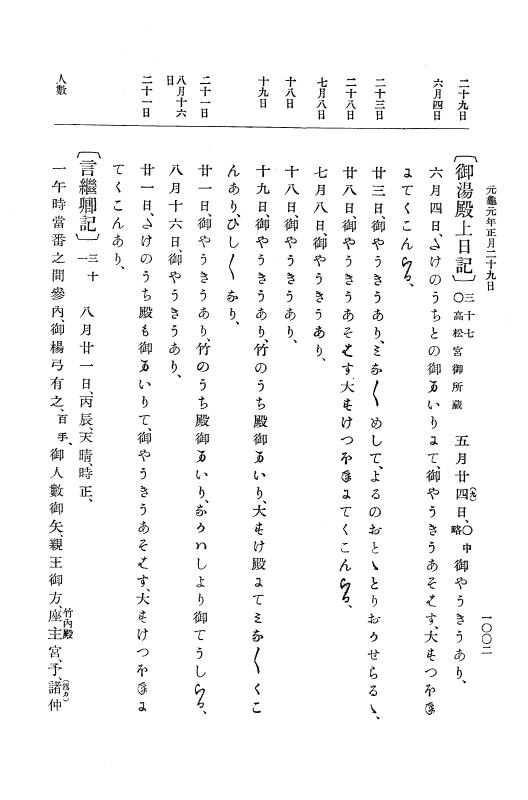 元龜元年正月二十九日
一〇〇二
二十九日
〔御湯殿上日記〕三十七 〇高松宮御所藏 五月廿四日、〇中略 御やうきうあり、
六月四日
六月四日、たけのうちとの御まいりにて、御やうきうあそはす、大すけつほね
にてくこんまいる、
二十三日
廿三日、御やうきうあり、みな〱めして、よるのおとゝとりおかせらるゝ、
二十八日
廿八日、御やうきうあそはす、大すけつほねにてくこんまいる、
七月八日
七月八日御やうきうあり、
十八日
十八日、御やうきうあり、
十九日
十九日、御やうきうあり、竹のうち殿御まいり、大すけ殿にてみな〱くこ
んあり、ひし〱なり、
二十一日
廿一日、御やうきうあり、竹のうち殿御まいり、なかハしより御てうしまいる、
八月十六日
八月十六日、御やうきうあり、
二十一日
廿一日、たけのうち殿も御まいりて、御やうきうあそはす、大すけつほねに
てくこんあり、
〔言繼卿記〕三十一 八月廿一日、丙辰、天晴、時正、
人數
一午時當番之間參內、御楊弓有之、百手、御人數御矢、親王御方、座主宮、竹內殿 予、諸仲